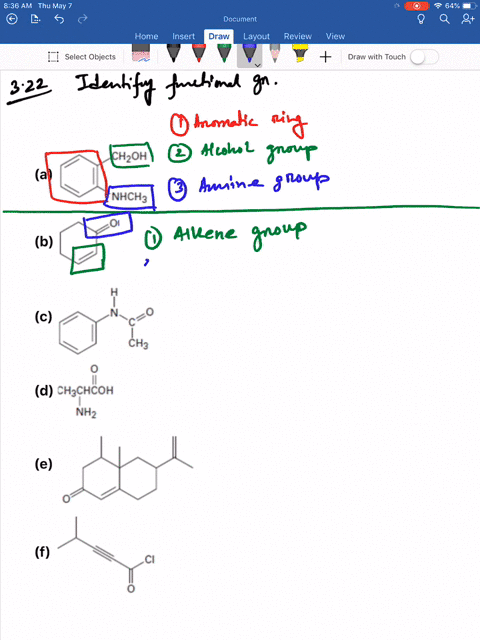 8:36 AM Thu May 7
64%
Document
Home Insert Draw Layout Review View
Select Objects
Draw with Touch
3.22 Identify functional gr.
① Aromatic ring
CH₂OH ② Alcohol group
(a)
NHCH₃ ③ Amine group
(b) O ① Alkene group
H
(c) N C O
CH₃
O
(d) CH₃CHCOH
NH₂
(e)
O
(f) Cl
O